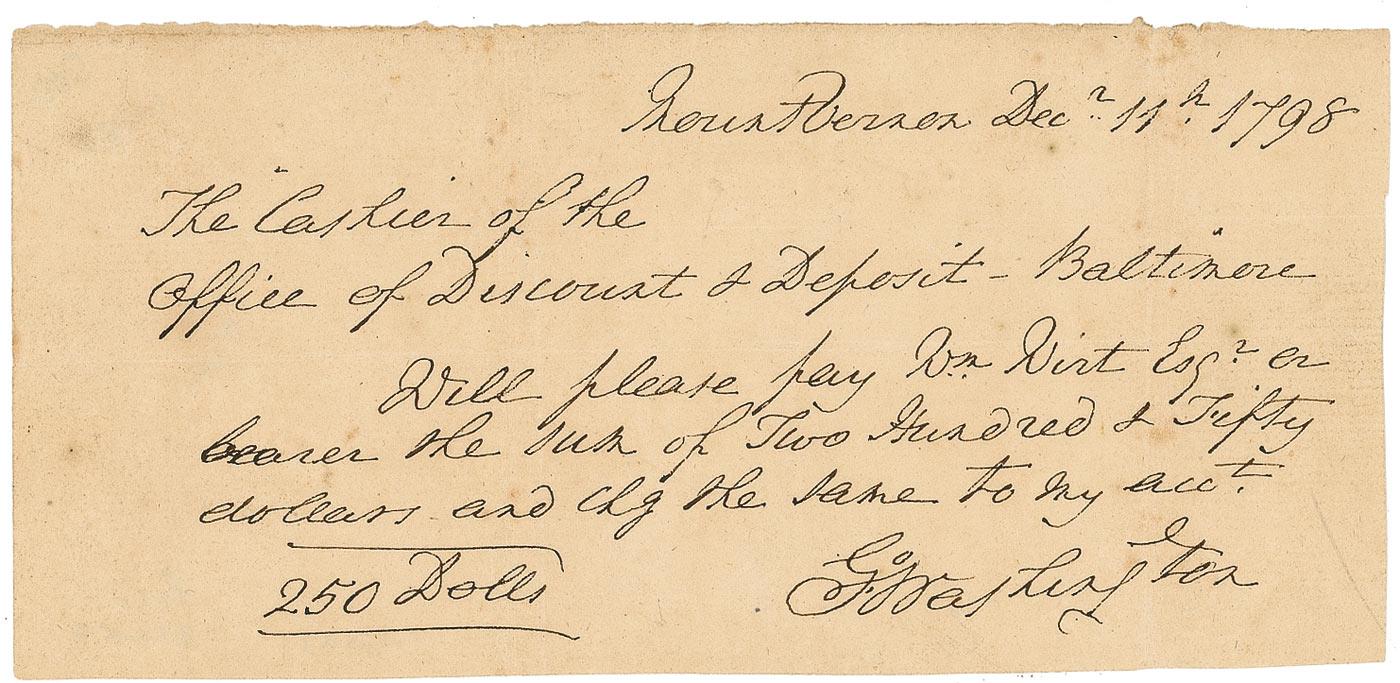 Mount Vernon Decr. 11h. 1798
The Cashier of the
Office of Discount & Deposit - Baltimore
Will please pay Wm. Wirt Esqr. or
bearer the sum of Two Hundred & Fifty
dollars and chg the same to my acct.
250 Dolls
Go Washington